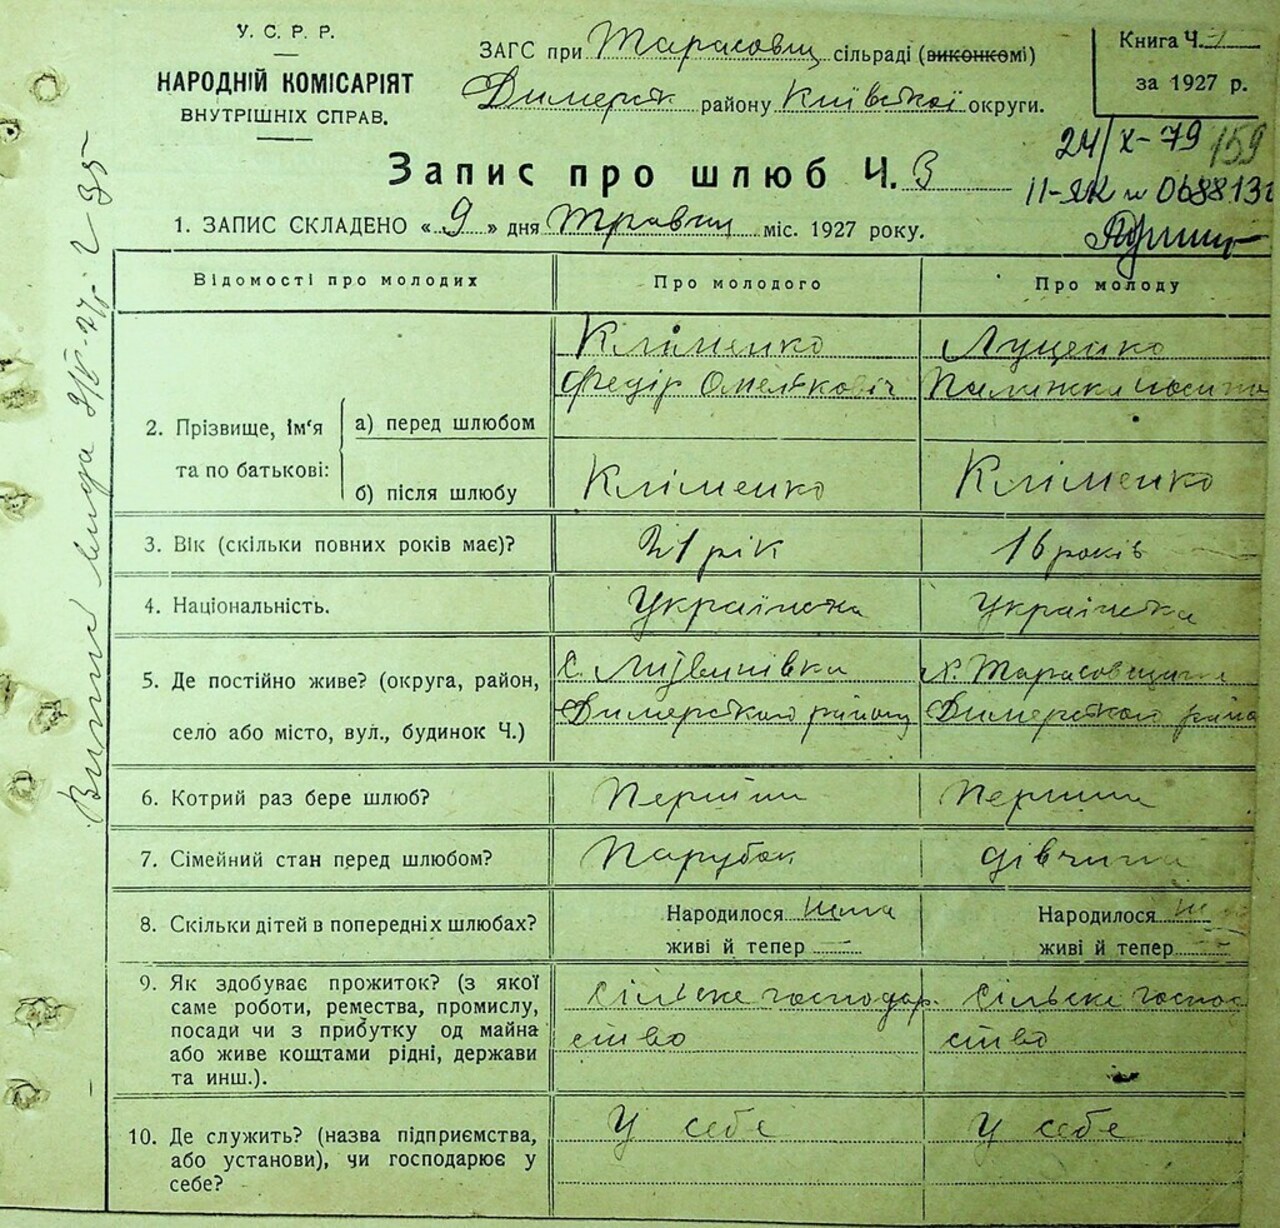 У. С. Р. Р.
НАРОДНІЙ КОМІСАРІЯТ
ВНУТРІШНІХ СПРАВ.
ЗАГС при Тарасовщ сільраді (виконкомі)
Димерськ району Київської округи.
Книга Ч.
за 1927 р.
24/X-79 159
II-ЯК № 068813
Запис про шлюб Ч. 3
1. ЗАПИС СКЛАДЕНО « 9 » дня Травня міс. 1927 року.
Відомості про молодих
Про молодого
Про молоду
2. Прізвище, ім'я
та по батькові:
а) перед шлюбом
Кліменко
Федір Омелькович
Луценко
б) після шлюбу
Кліменко
Кліменко
3. Вік (скільки повних років має)?
21 рік
16 років
4. Національність.
Українська
Українська
5. Де постійно живе? (округа, район,
село або місто, вул., будинок Ч.)
Димерського району
х. Тарасовщина
Димерського райо
6. Котрий раз бере шлюб?
Перший
Перший
7. Сімейний стан перед шлюбом?
Парубок
дівчина
8. Скільки дітей в попередніх шлюбах?
Народилося нема
живі й тепер —
Народилося не
живі й тепер —
9. Як здобуває прожиток? (з якої
саме роботи, ремества, промислу,
посади чи з прибутку од майна
або живе коштами рідні, держави
та инш.).
Сільске господар.
ство
Сільске госпо
ство
10. Де служить? (назва підприємства,
або установи), чи господарює у
себе?
У себе
У себе